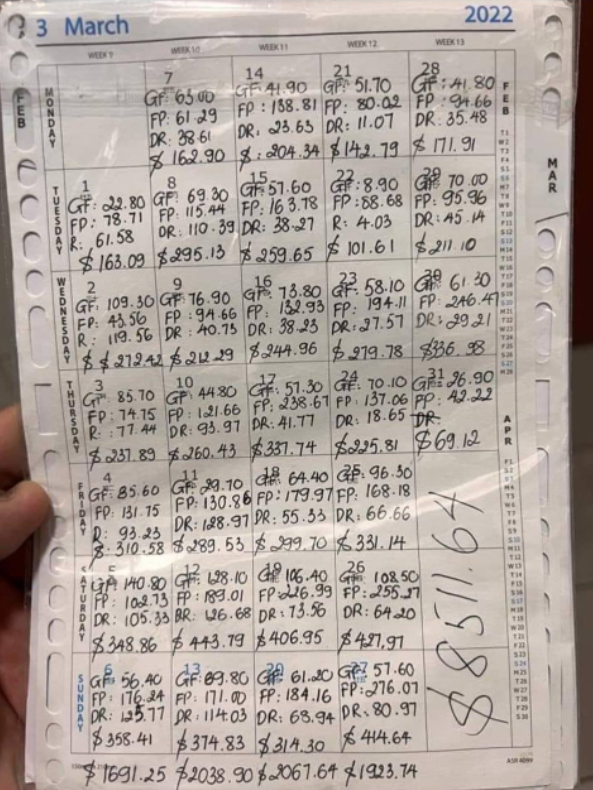 3 March
2022
WEEK 9
WEEK 10
WEEK 11
WEEK 12
WEEK 13
FEB
MONDAY
7
GF: 63.00
FP: 61.29
DR: 38.61
$ 162.90
14
GF: 41.90
FP: 138.81
DR: 23.63
$: 204.34
21
GF: 51.70
FP: 80.02
DR: 11.07
$142.79
28
GF: 41.80
FP: 94.66
DR: 35.48
$ 171.91
TUESDAY
1
GF: 22.80
FP: 78.71
R: 61.58
$163.09
8
GF: 69.30
FP: 115.44
DR: 110.39
$295.13
15
GF: 57.60
FP: 163.78
DR: 38.27
$259.65
22
GF: 8.90
FP: 88.68
R: 4.03
$ 101.61
29
GF: 70.00
FP: 95.96
DR: 45.14
$211.10
WEDNESDAY
2
GF: 109.30
FP: 43.56
R: 119.56
$ $272.42
9
GF: 76.90
FP: 94.66
DR: 40.73
$212.29
16
GF: 73.80
FP: 132.93
DR: 38.23
$244.96
23
GF: 58.10
FP: 194.11
DR: 27.57
$279.78
30
GF: 61.30
FP: 246.47
DR: 29.21
$336.98
THURSDAY
3
GF: 85.70
FP: 74.75
R: 77.44
$237.89
10
GF: 44.80
FP: 121.66
DR: 93.97
$260.43
17
GF: 57.30
FP: 238.67
DR: 41.77
$337.74
24
GF: 70.10
FP: 137.06
DR: 18.65
$225.81
31
GF: 26.90
FP: 42.22
DR:
$69.12
FRIDAY
4
GF: 85.60
FP: 131.75
R: 93.23
$: 310.58
11
GF: 29.70
FP: 130.86
DR: 128.97
$289.53
18
GF: 64.40
FP: 179.97
DR: 55.33
$299.70
25
GF: 96.30
FP: 168.18
DR: 66.66
$331.14
SATURDAY
5
GF: 140.80
FP: 102.73
DR: 105.33
$348.86
12
GF: 128.10
FP: 189.01
BR: 126.68
$ 443.79
19
GF: 106.40
FP: 226.99
DR: 73.56
$406.95
26
GF: 108.50
FP: 255.27
DR: 64.20
$427.97
SUNDAY
6
GF: 56.40
FP: 176.24
DR: 125.77
$358.41
13
GF: 89.80
FP: 171.00
DR: 114.03
$374.83
20
GF: 61.20
FP: 184.16
DR: 68.94
$314.30
27
GF: 57.60
FP: 276.07
DR: 80.97
$414.64
$1691.25
$2038.90
$2067.64
$1923.74
$8511.64
FEB
MAR
APR